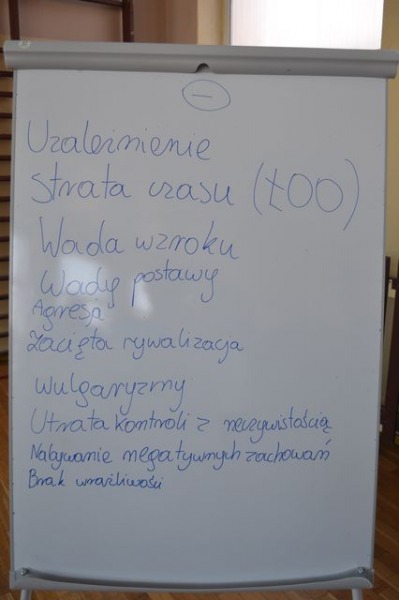 −
Uzależnienie
Strata czasu (ŁOO)
Wada wzroku
Wady postawy
Agresja
Zacięta rywalizacja
Wulgaryzmy
Utrata kontroli z rzeczywistością
Nabywanie negatywnych zachowań
Brak wrażliwości